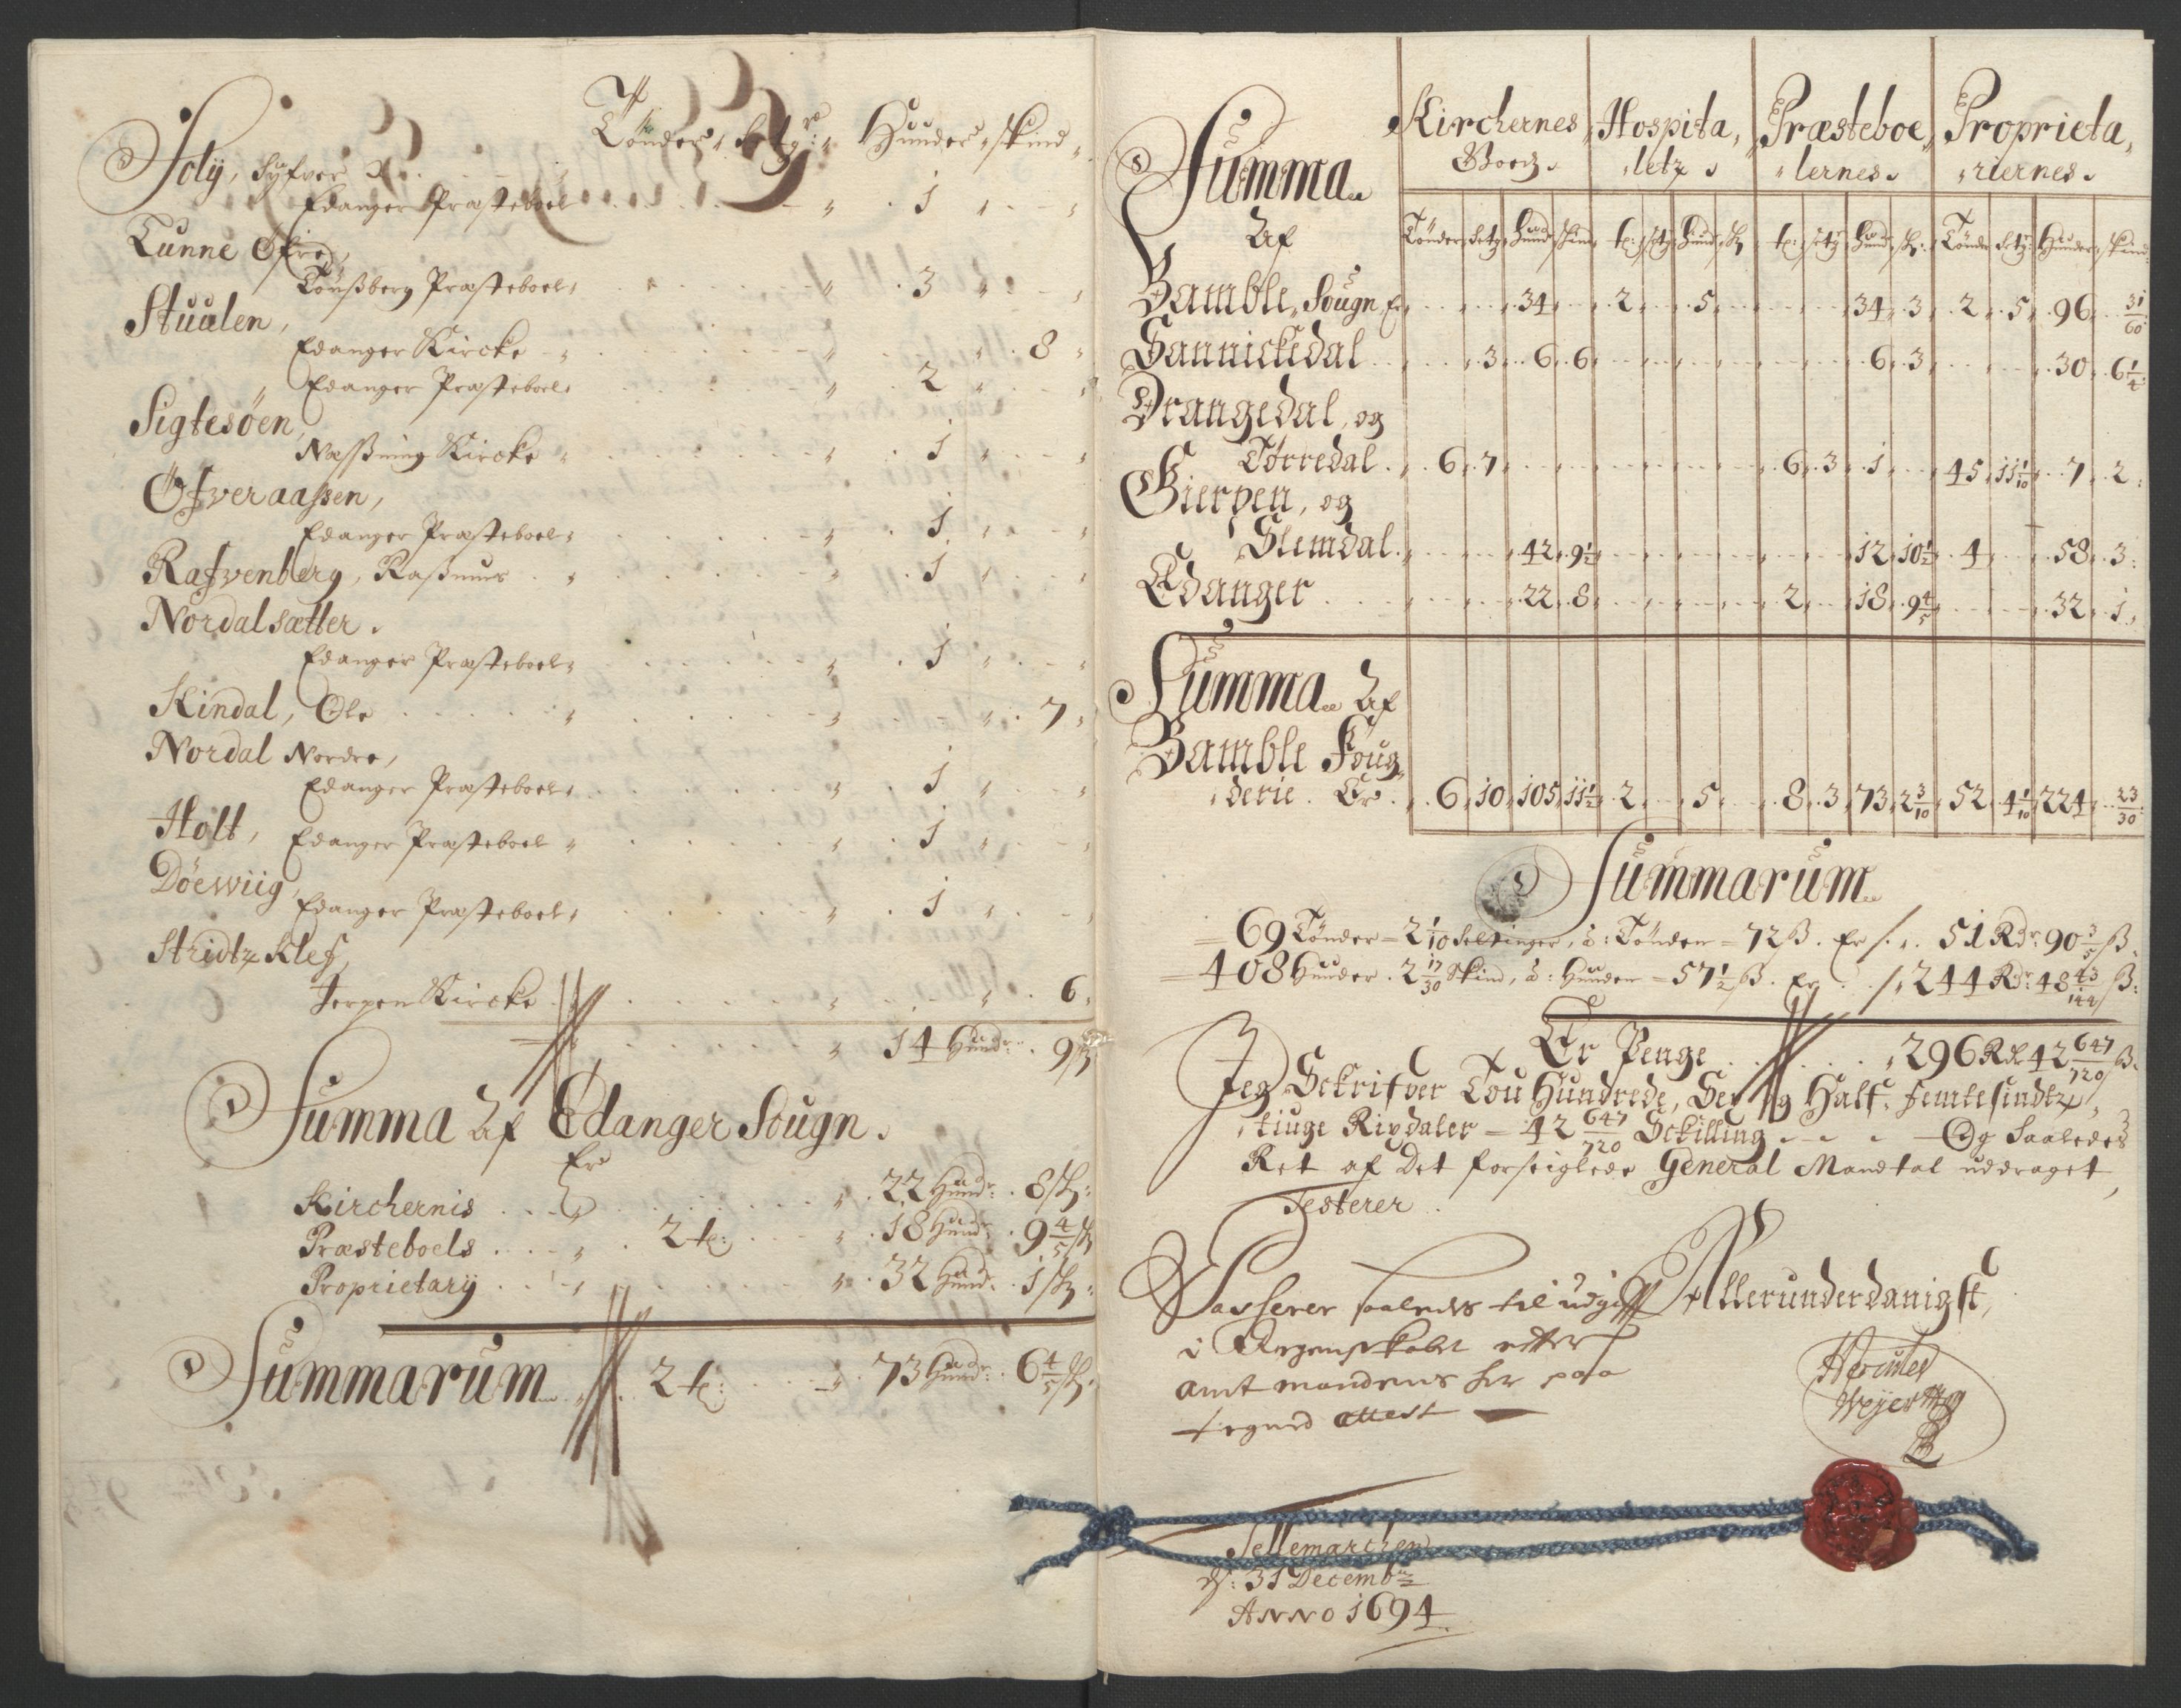 Tønder, Setg:r Hunder, skind
Foly, Syfver
Edanger Præsteboel 1
Lunne Øfre,
Tönßberg Præsteboel, 3
Stuulen,
Edanger Kircke 8
Edanger Præsteboel, 2
Sigtesöen,
Næßning Kircke 1
Öfveraaßen,
Edanger Præsteboel, 1
Rafvenberg, Raßmus 1
Nordalsætter.
Edanger Præsteboel, 1
Kindal, Ole 7
Nordal Nordre,
Edanger Præsteboel, 1
Holt, Edanger Præsteboel 1
Döewiig, Edanger Præsteboel, 1
Stridtz Klef,
Jerpen Kircke 6
14 Hund: 9 sk
Summa Af Edanger Sougn.
Er
Kirchernis 22 Hund: 8 sk:
Præsteboels 2 t: 18 Hund: 9 4/5 sk
Proprietary 32 Hund: 1 sk:
Summarum 2 t: 73 Hund: 6 4/5 sk:
Summa
Af
Kirchernes Goedz. Hospitaletz. Præsteboelernes. Proprietariernes.
Tönder, Setg, Hund, skin, t:, setg, Hund, sk, t:, setg, Hund, sk:, Tönde, Setg:, Hunder, skind:
Bamble, Sougn, Er 34 2 5 34 3 2 5 96 31/60
Sannickedal 3 6 6 6 3 30 6 1/4
Drangedal, og
Törredal 6 7 6 3 1 45 11 1/10 7 2
Gierpen, og
Slemdal 42 9 1/2 12 10 1/2 4 58 3
Edanger 22 8 2 18 9 4/5 32 1
Summa Af
Bamble Foug-
derie. Er. 6 10 105 11 1/2 2 5 8 3 73 2 3/10 52 4 1/10 224 23/30
Summarum
69 Tönder = 2 1/10 Setinger, à: Tönden = 72 ß. Er 51 Rdr: 90 3/5 ß.
408 Hunder. 2 17/30 Skind, à: Hunden = 57 1/2 ß. Er 244 Rdr: 48 43/144 ß:
Er Penge 296 Rdr 42 647/720 ß.
Jeg Sckrifver Tou Hundrede, Sex og Half: femtesindtz,
tiuge Rixdaler = 42 647/720 Sckilling Og Saaledes
Ret af Det forseiglede General Mandtal uddraget,
Testerer.
Passerer saaledes til udgift Allerunderdanigst,
i Regenskabet efter
amtmandens her paa
tegned attest
Hercules
Weyer
Tellemarchen
d: 31 Decemb:
ANNO 1694